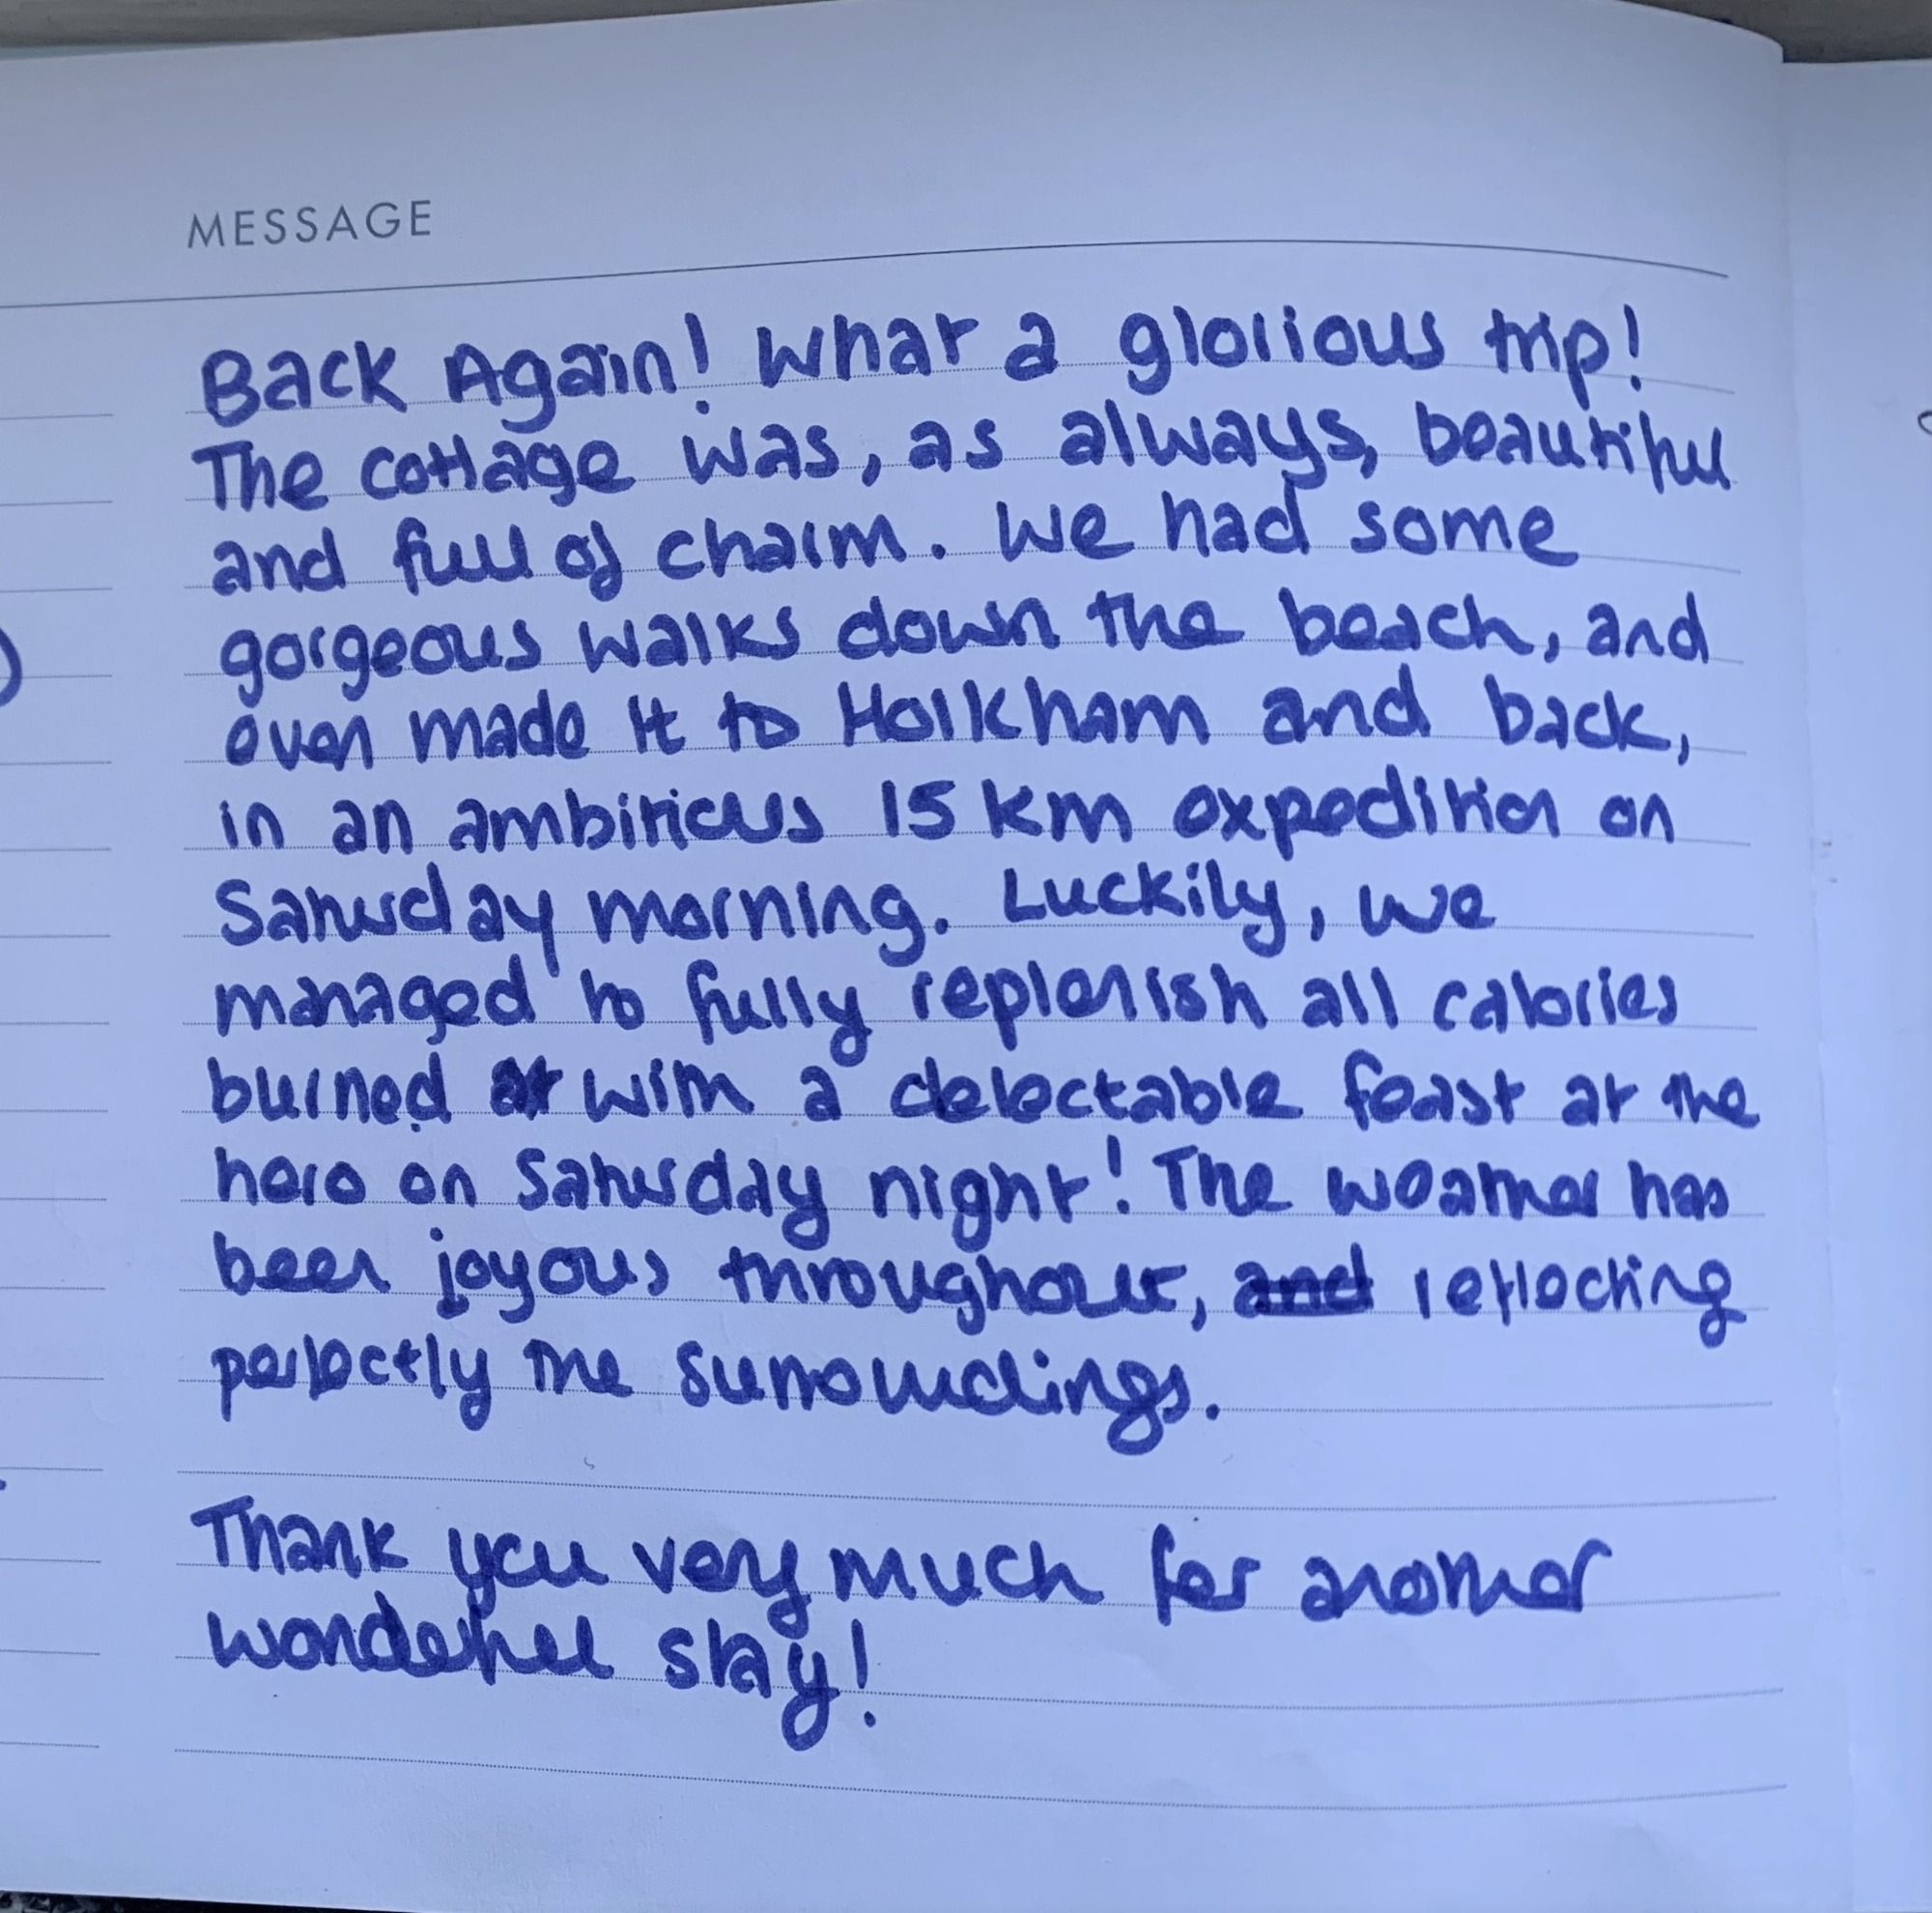 MESSAGE
Back Again! What a glorious trip!
The cottage was, as always, beautiful
and full of charm. We had some
gorgeous walks down the beach, and
even made it to Holkham and back,
in an ambitious 15 km expedition on
Saturday morning. Luckily, we
managed to fully replenish all calories
burned at with a delectable feast at the
hero on Saturday night! The weather has
been joyous throughout, and reflecting
perfectly the surroundings.
Thank you very much for another
wonderful stay!